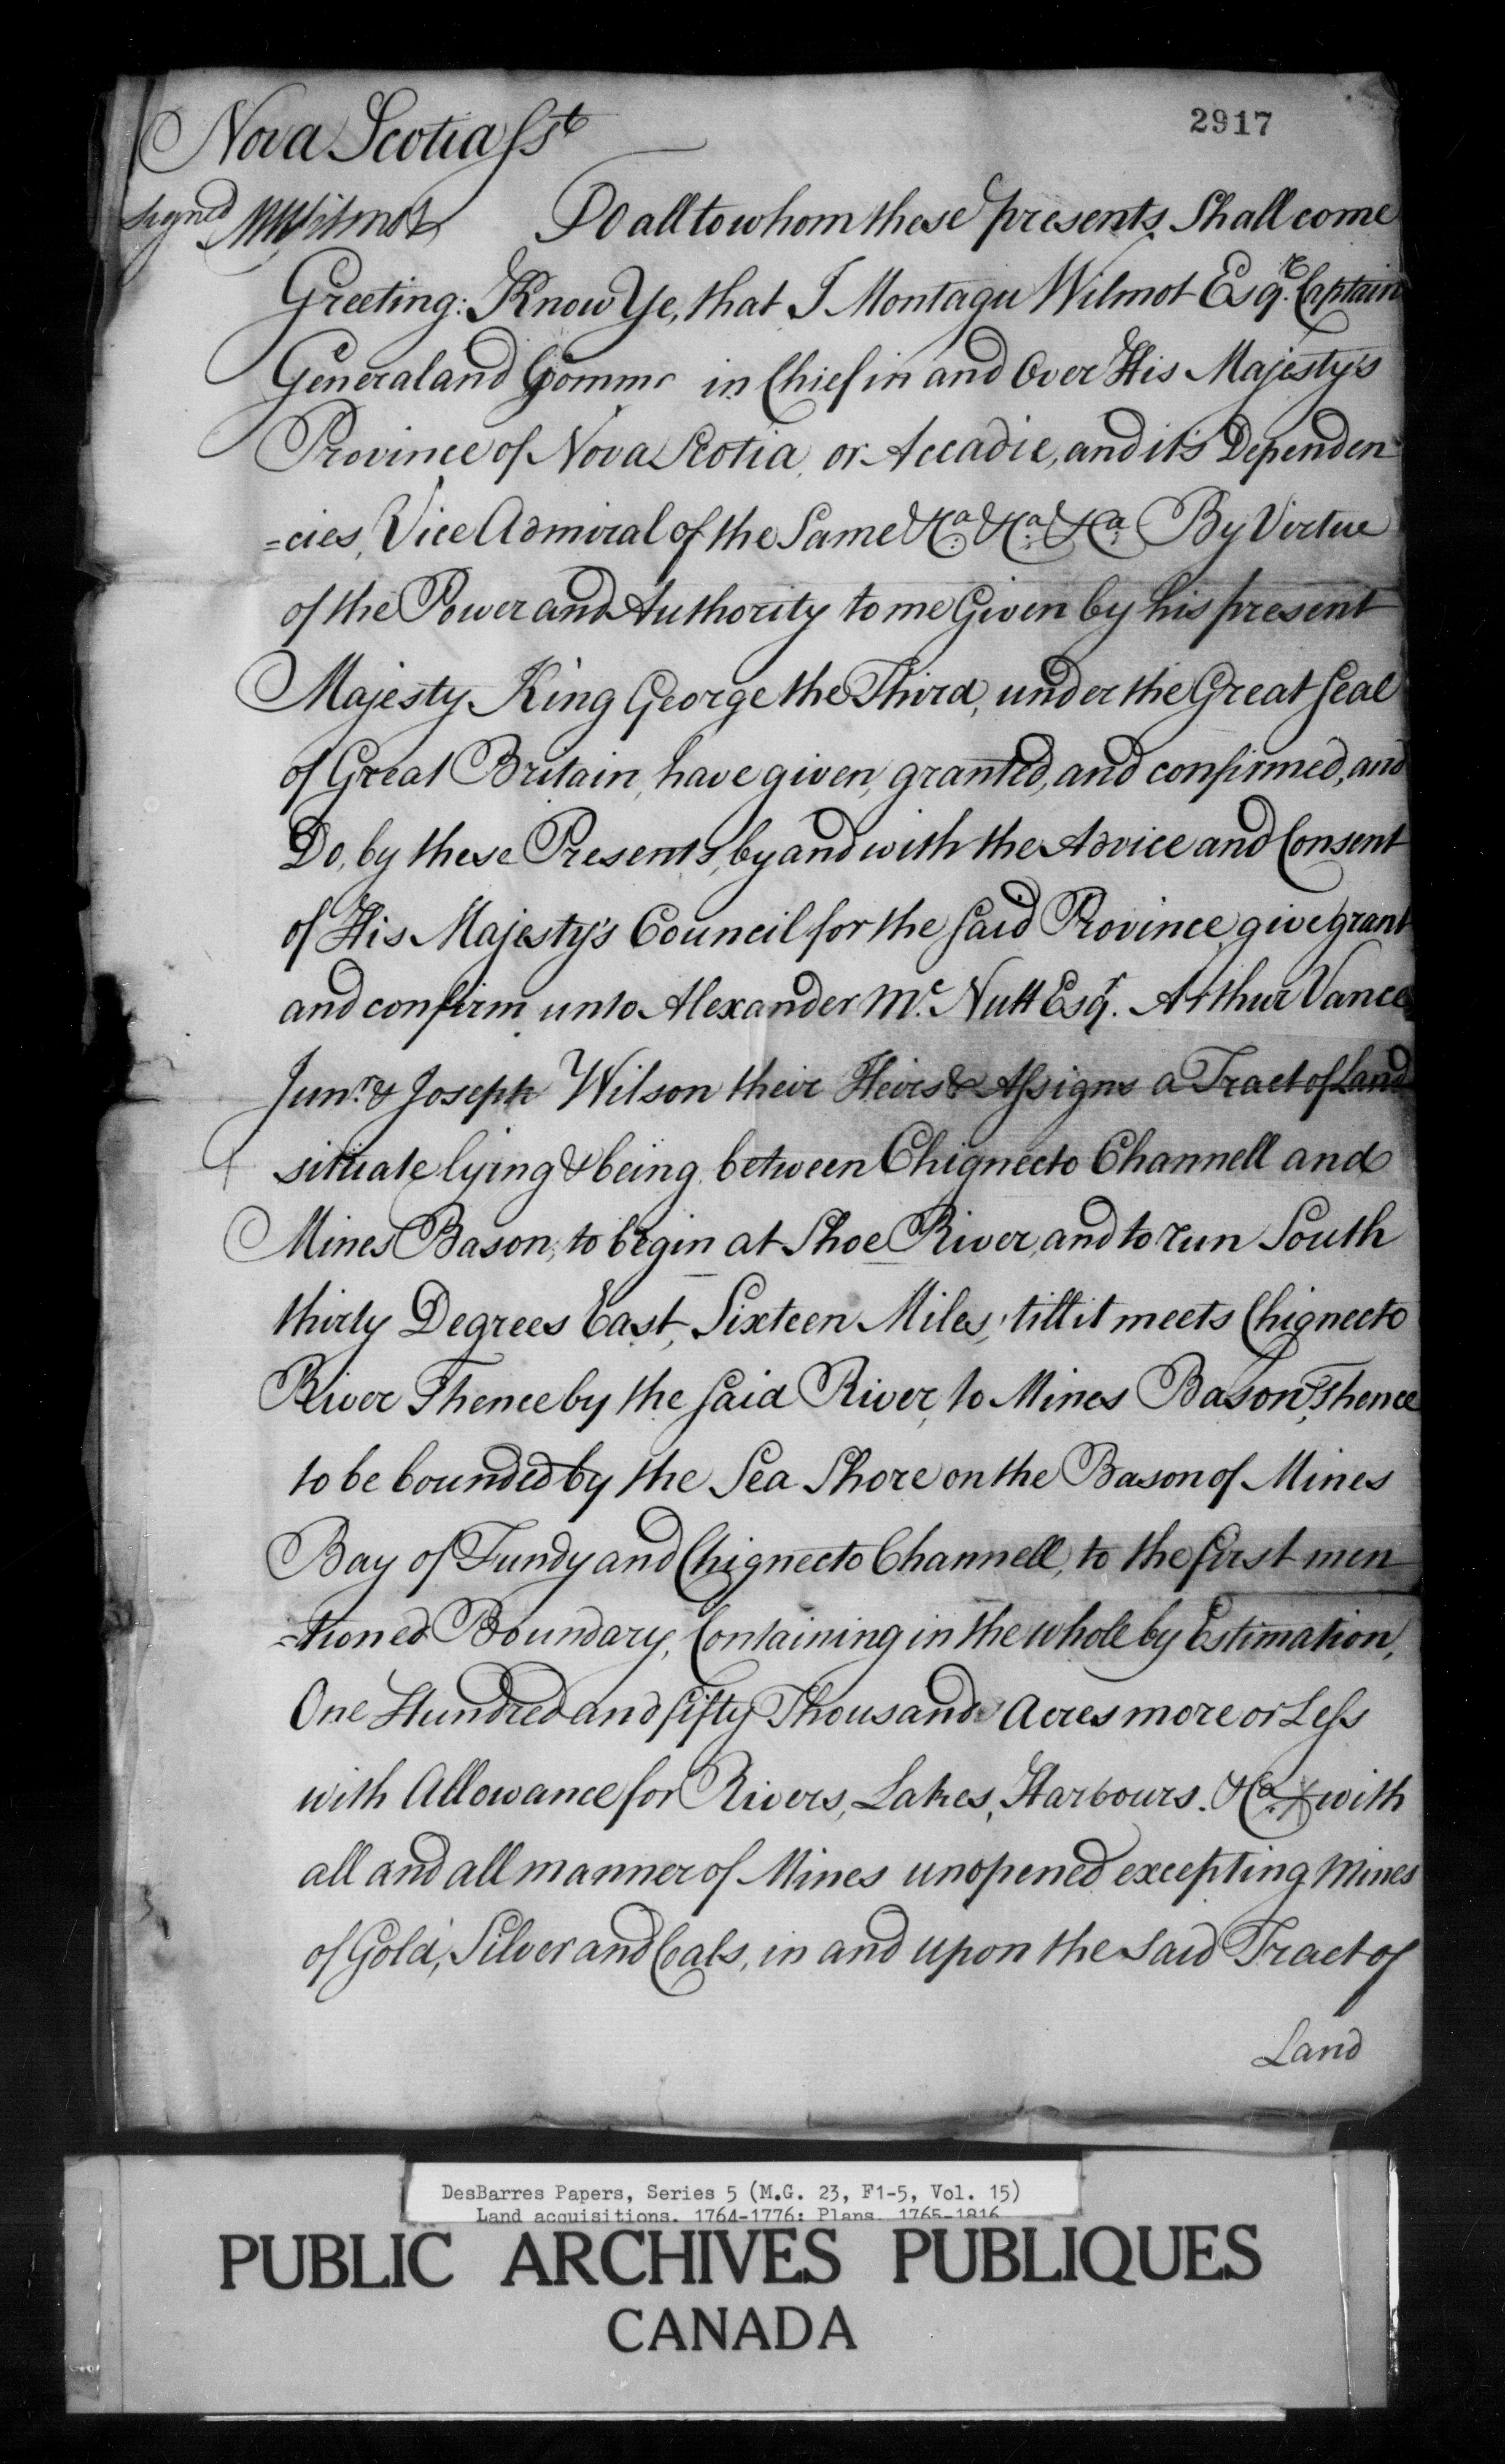 2917
Nova Scotia Ss.t
Signed M Wilmot To all to whom these presents Shall come
Greeting: Know Ye, that I Montagu Wilmot Esqr. Captain
General and Commr in Chief in and Over His Majesty's
Province of Nova Scotia, or Accadie, and its Dependen
=cies, Vice Admiral of the Same &ca. &ca. &ca. By Virtue
of the Power and Authority to me Given by his present
Majesty King George the Third, under the Great Seal
of Great Britain, have given, granted, and confirmed, and
Do, by these Presents, by and with the Advice and Consent
of His Majesty's Council for the Said Province, give grant
and confirm unto Alexander Mc. Nutt Esqr. Arthur Vance
Junr. & Joseph Wilson their Heirs & Assigns a Tract of Land
situate lying & being between Chignecto Channell and
Mines Bason, to begin at Shoe River, and to run South
thirty Degrees East, Sixteen Miles, till it meets Chignecto
River Thence by the Said River, to Mines Bason, Thence
to be bounded by the Sea Shore on the Bason of Mines
Bay of Fundy and Chignecto Channell, to the first men
=tioned Boundary, Containing in the whole by Estimation,
One Hundred and fifty Thousand Acres more or Less
with Allowance for Rivers, Lakes, Harbours. &ca. with
all and all manner of Mines unopened excepting Mines
of Gold, Silver and Coals, in and upon the said Tract of
Land
DesBarres Papers, Series 5 (M.G. 23, F1-5, Vol. 15)
Land acquisitions, 1764-1776; Plans, 1765-1816
PUBLIC ARCHIVES PUBLIQUES
CANADA